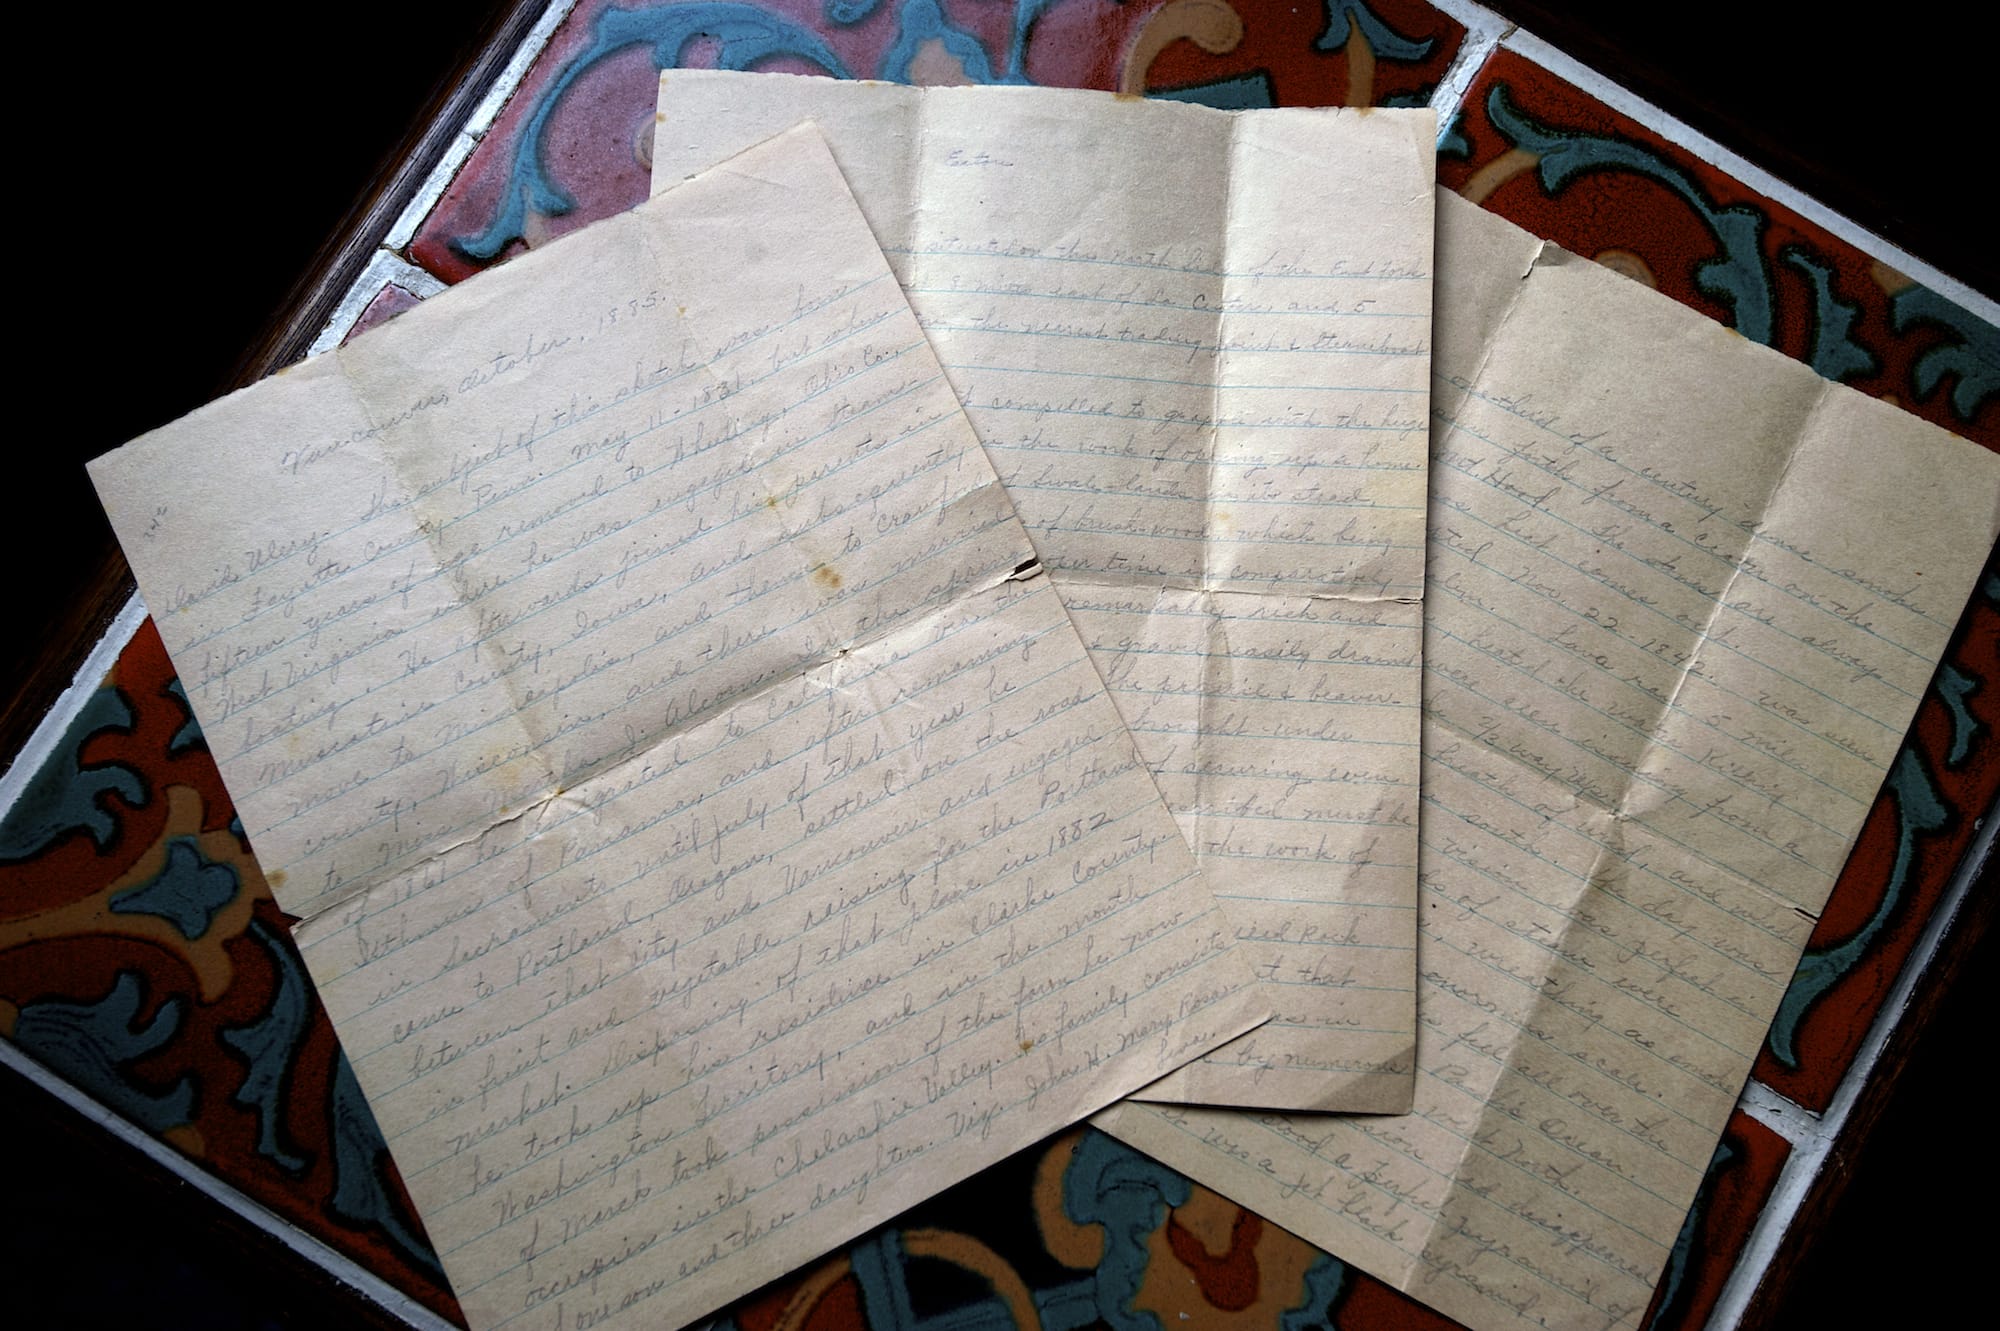 Vancouver, October, 1885.
David Ulery. The subject of this sketch was born
in Fayette County Penn. May 11-1831, but when
fifteen years of age removed to Wheeling, Ohio Co.,
West Virginia where he was engaged in steam-
boating. He afterwards joined his parents in
Muscatine County, Iowa, and subsequently
move to Minneapolis, and thence to Crawford
county, Wisconsin, and there was married
to Miss Martha J. Alcorn. In the spring
of 1861 he emigrated to California via the
Isthmus of Panama, and after remaining
in Sacramento until July of that year he
came to Portland, Oregon, settled on the road
between that city and Vancouver and engaged
in fruit and vegetable raising for the Portland
market. Disposing of that place in 1882
he took up his residence in Clarke County
Washington Territory, and in the month
of March took possession of the farm he now
occupies in the Chelachie Valley. His family consists
of one son and three daughters. Viz. John H. Mary Rosa-
Eaton
situated on the North Side of the East Fork
8 miles east of La Center, and 5
the nearest trading point & Steamboat
compelled to grapple with the huge
in the work of opening up a home.
Swale-lands in its stead,
of brush-wood, which being
time is comparatively
remarkably rich and
& gravel easily drained
The prairie & beaver-
brought under
of securing even
must be
the work of
Rock
that
in
by numerous
one-third of a century dense smoke
forth from a crater on the
Hood. The stones are always
hot comes out.
Nov. 22-1842. was seen
Lava ran 5 miles
hot the water Killing
were seen issuing from a
2/3 way up
south. The day was
vision was perfect in
of steam were
wreathing as smoke
enormous scale.
fell all over the
Pauls Ocean.
went North.
disappeared
stood a perfect pyramid of
was a jet black pyramid.